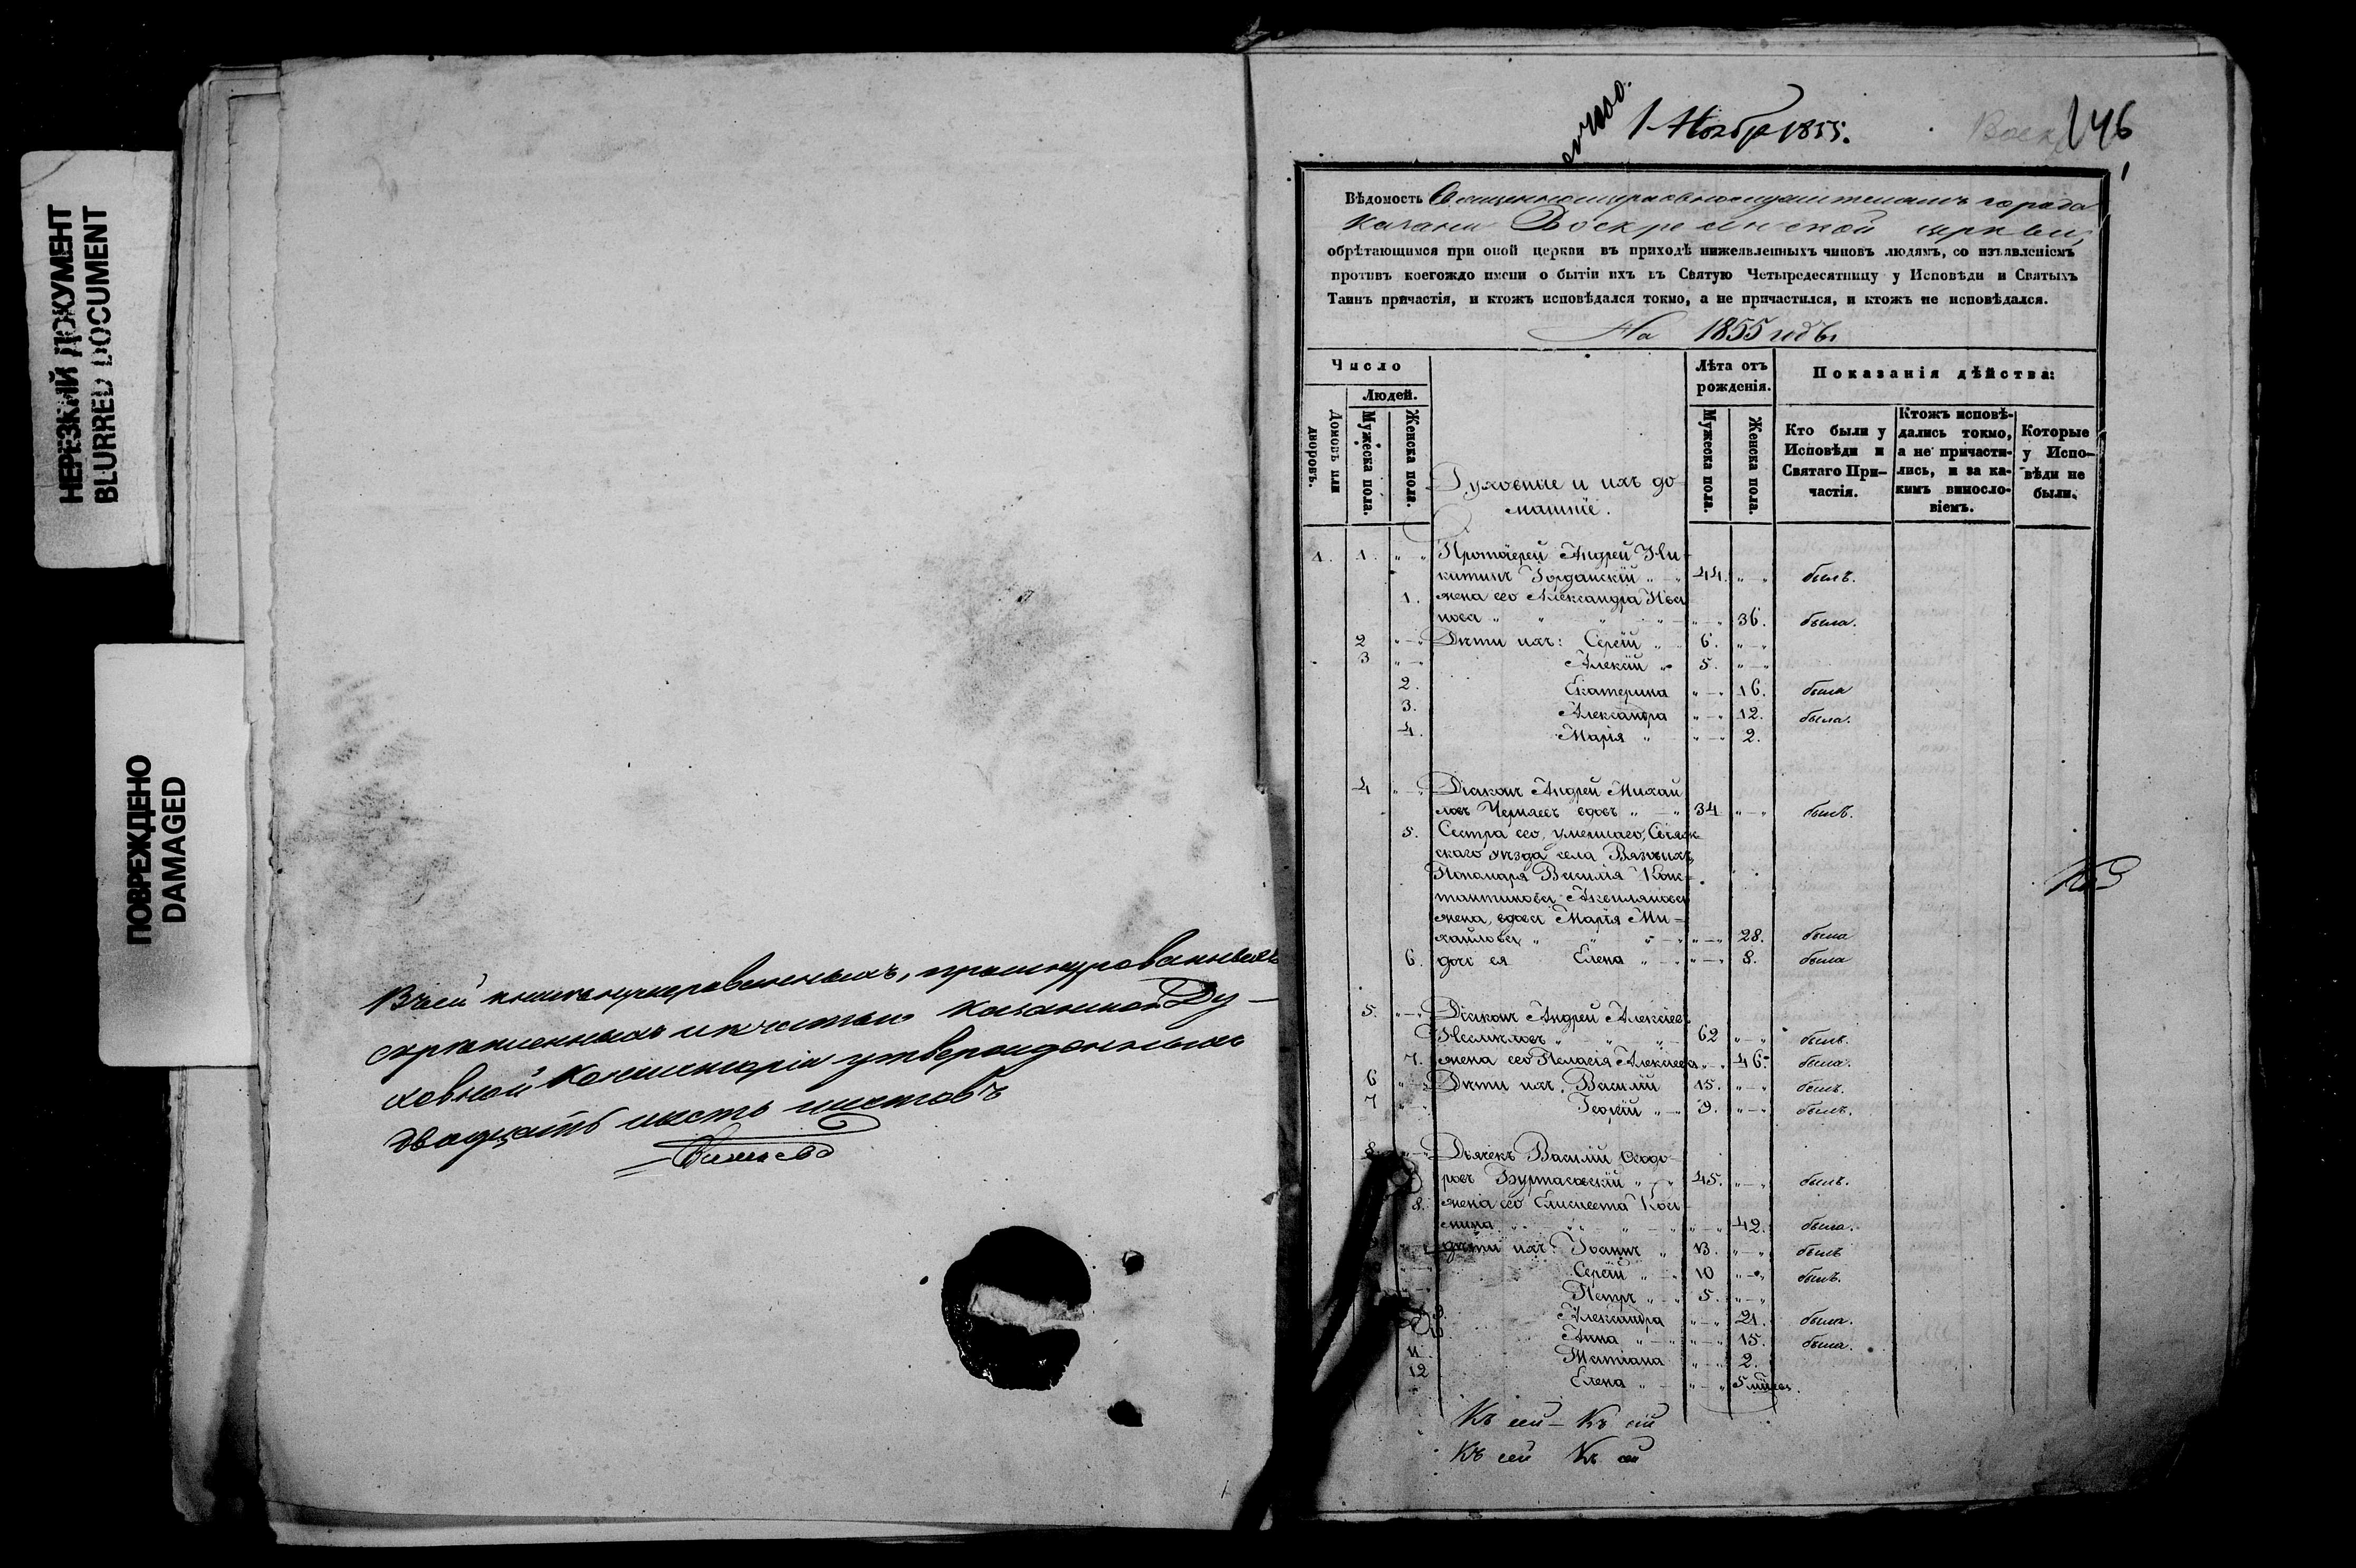 НЕРЕЗКИЙ ДОКУМЕНТ
BLURRED DOCUMENT
ПОВРЕЖДЕНО
DAMAGED
В сей книге нумерованныхъ, прошнурованныхъ
скрепленныхъ и печатью Казанской Ду-
ховной Консисторіи утвержденныхъ
двадцать шесть листовъ
1 Ноября 1855.
146
1
Вѣдомость Священноцерковнослужителямъ города
Казани Воскресенской церкви,
обрѣтающимся при оной церкви въ приходѣ нижеявленныхъ чиновъ людямъ, со изъявленіемъ
противъ коегождо имени о бытіи ихъ въ Святую Четыредесятницу у Исповѣди и Святыхъ
Таинъ причастія, и ктожъ исповѣдался токмо, а не причастился, и ктожъ не исповѣдался.
На 1855 годъ
Число
Лѣта отъ рожденія.
Показанія дѣйства:
Людей.
Домовъ или дворовъ.
Мужеска пола.
Женска пола.
Духовные и ихъ до-
машніе.
Мужеска пола.
Женска пола.
Кто были у Исповѣди и Святаго При-частія.
Ктожъ исповѣ-дались токмо, а не причасти-лись, и за ка-кимъ виносло-віемъ.
Которые у Испо-вѣди не были.
1. 1. " " Протоіерей Андрей Ни-
китинъ Іорданскій " 44. " " былъ.
1. жена его Александра Ива
нова " " " " 36. была.
2 " " Дѣти ихъ: Сергій " 6. " "
3 " " Алексій " 5. " "
2. Екатерина " " 16. была
3. Александра " " 12. была.
4. Марія " " " 2.
4 " " Діаконъ Андрей Михай
ловъ Черняевъ вдовъ " " 34 " " былъ.
5. Сестра его, умершаго, Свіяж-
скаго уѣзда села Вязовыхъ
Пономаря Василія Конс-
тантинова
жена, вдова Марія Ми-
хайлова " " " " " 28. была
6. дочь ея Елена " " " 8. была
5. " " Діаконъ Андрей Алексѣевъ
" " 62 " " былъ.
7. жена его Пелагія Алексѣева " " 46. была.
6 " " Дѣти ихъ: Василій 15. " " былъ.
7 " " Георгій " 9. " " былъ.
8. " " Дьячекъ Василій Ѳеодо-
ровъ Буртасовскій " " 45. " " былъ.
8. жена его Елисавета Кось
мина " " " " " 42. была.
" " дѣти ихъ: Іоаннъ " 13. " " былъ
Сергій " 10 " " былъ.
Петръ " 5. " "
9. Александра " " 21. была.
10 Анна " " " 15. была.
11. Татіана " " 2.
12 Елена " " " 5 мѣсяц.
Къ сей - Къ сей
Къ сей Къ сей